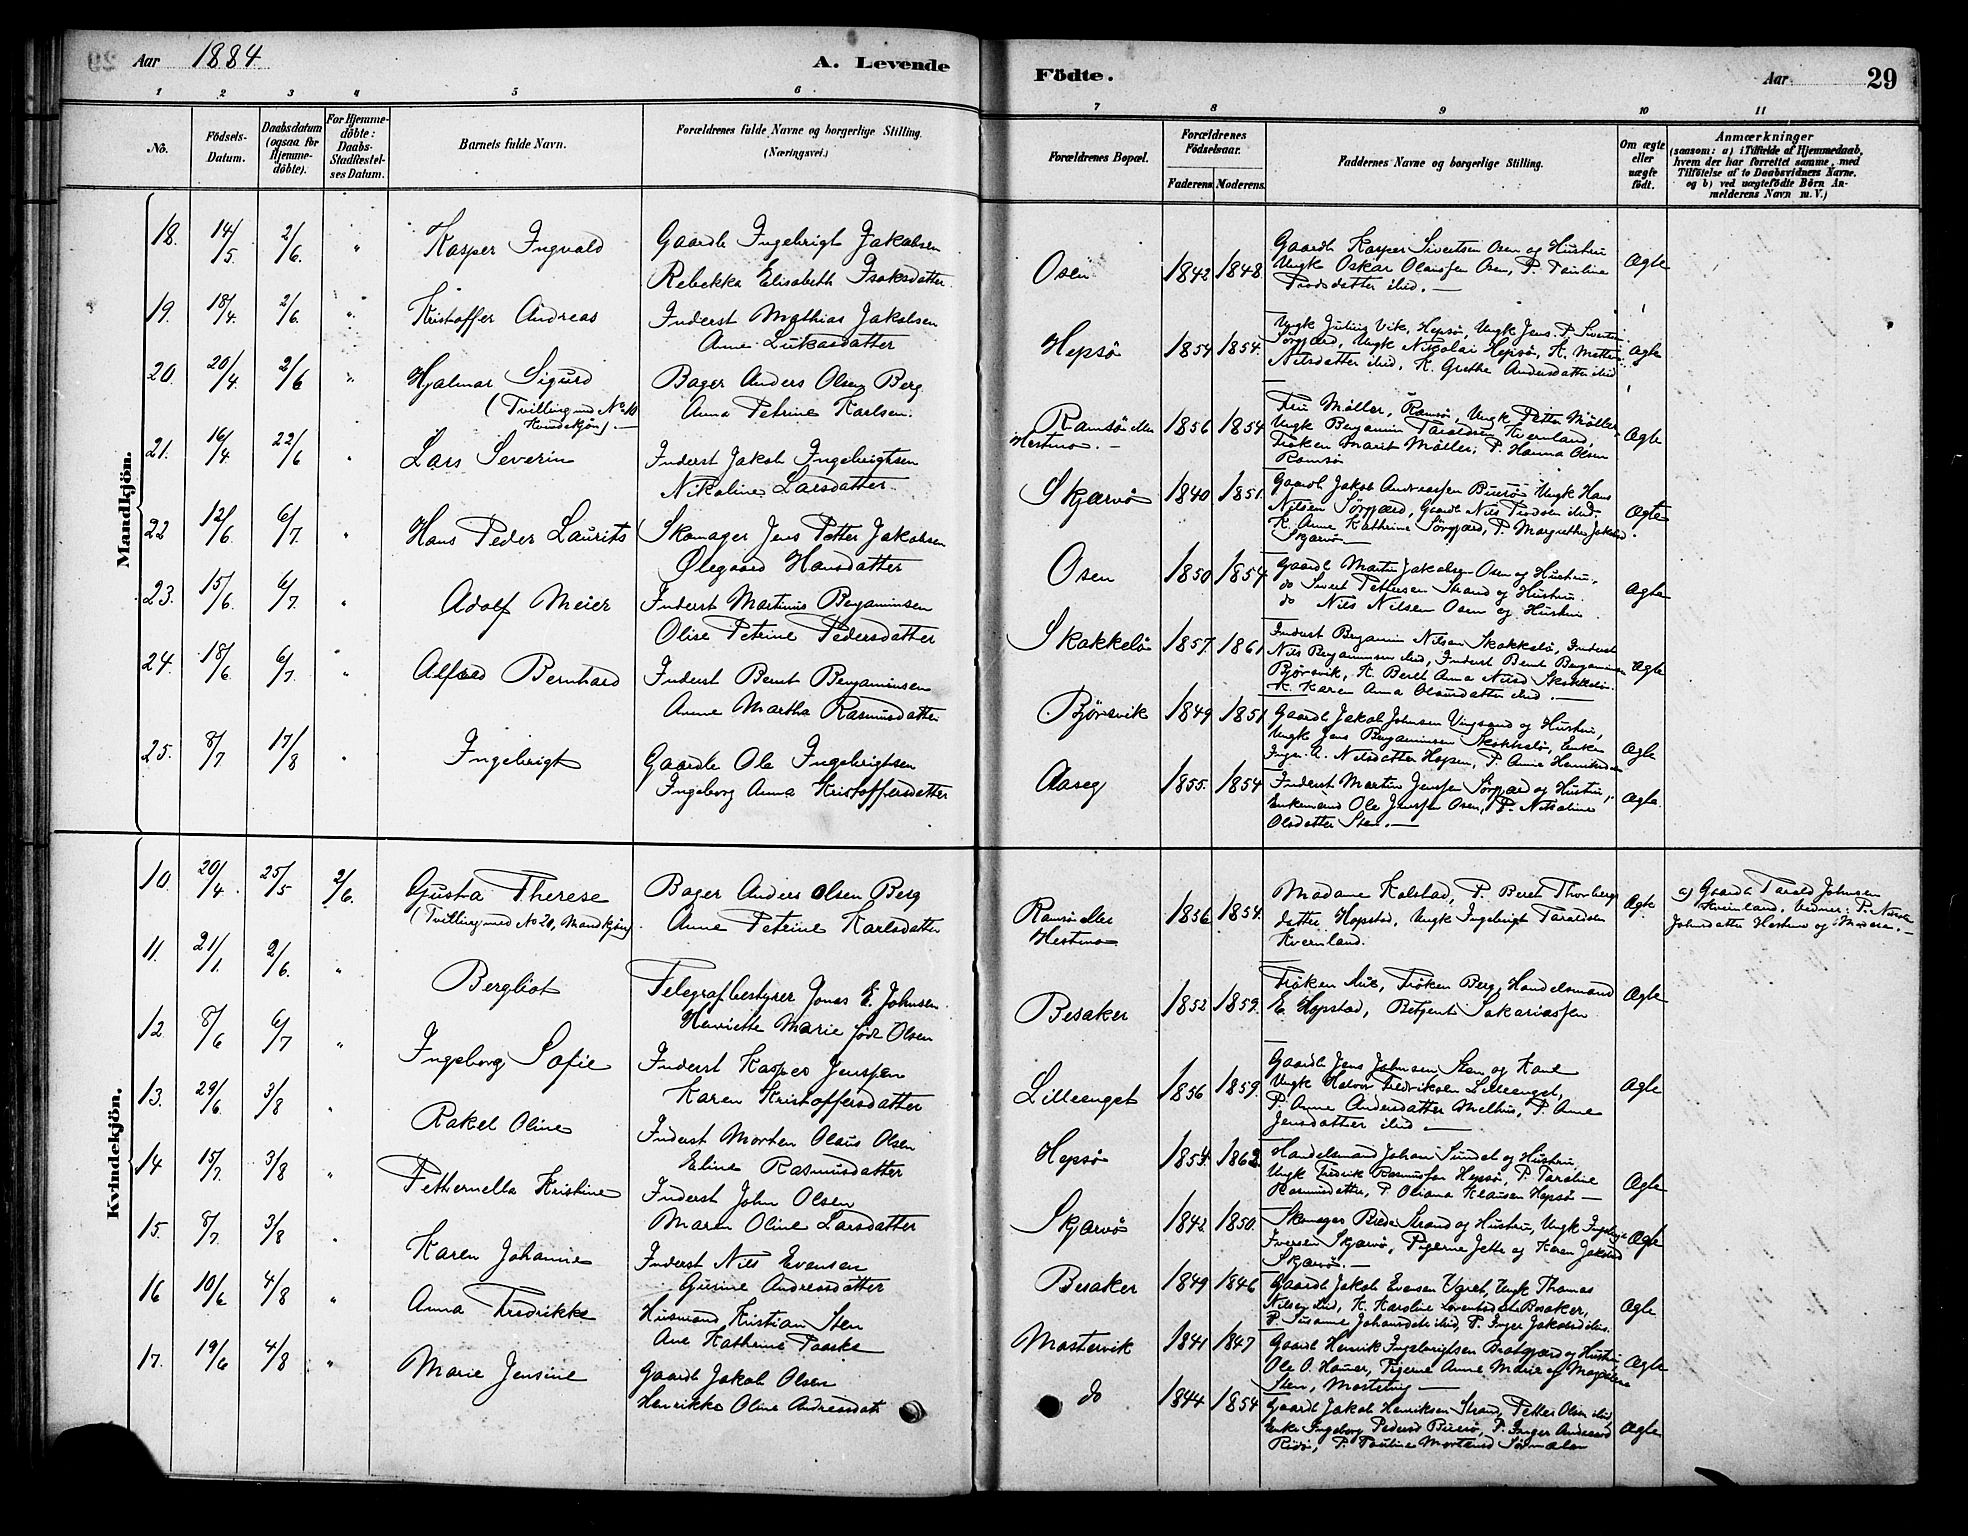 Aar 1884 A. Levende Födte. Aar 29
1 2 3 4 5 6 7 8 9 10 11
No. Födsels-Datum. Daabsdatum (ogsaa for Hjemmedöbte). For Hjemmedöbte: Daabs-Stadfæstelses Datum. Barnets fulde Navn. Forældrenes fulde Navne og borgerlige Stilling. (Næringsvei.) Forældrenes Bopæl. Forældrenes Födselsaar. Faderens Moderens. Faddernes Navne og borgerlige Stilling. Om ægte eller uægte födt. Anmærkninger (saasom: a) i Tilfælde af Hjemmedaab, hvem der har forrettet samme, med Tilföielse af to Daabsvidners Navne. og b) ved uægtefödte Börn Anmelderens Navn m. V.)
Mandkjön.
18. 14/5. 2/6. " Kasper Ingvald Gaardb Ingebrigt Jakobsen
Rebekka Elisabeth Isaksdatter
Osen 1842 1848. Gaardb Kasper Sivertsen Osen og Hustru
Ungk Oskar Olaussen Osen, P. Pauline
ibid. —
Ægte
19. 18/4. 2/6. " Kristoffer Andreas Inderst Mathias Jakobsen
Anne Lukasdatter
Hepsö 1854 1854. Ungk Julius Vik, Hepsö, Ungk Jens P. Sivertsen
Sörgjærd, Ungk Nikolai Hepsö, K. Mettine
Nilsdatter ibid, K. Grethe Andersdatter ibid
Ægte
20. 20/4. 2/6 " Hjalmar Sigurd
(Tvilling med No 10 Kvindekjön). —
Bager Anders Olsen Berg
Anna Petrine Karlsen.
Ramsö eller
Hestmo. —
1856 1854 Fru Möller, Ramsö, Ungk Petter Möller
Ungk Benjamin Taraldsen Kvernland,
Fröken Marit Möller, P. Hanna Olsen
Ramsö
Ægte
21. 16/4. 22/6 " Lars Severin Inderst Jakob Ingebrigtsen
Nikoline Larsdatter
Skjærvö 1840 1851. Gaardb Jakob Andreassen Buesö Ungk Hans
Nilsen Sörgjærd, Gaardb Nils ibid.
K. Anne Kathrine Sörgjærd, P. Margrethe Jakobsd.
Skjærvö —
Ægte
22 12/6. 6/7. " Hans Peder Laurits Skomager Jens Petter Jakobsen
Olegaard Hansdatter
Osen 1850 1854 Gaardb Martin Jakobsen Osen og Hustru,
do Sivert Pettersen Strand og Hustru
do Nils Nilsen Osen og Hustru
Ægte
23. 15/6. 6/7. " Adolf Meier Inderst Martinus Benjaminsen
Olise Petrine Pedersdatter
Skokkelö 1857. 1861 Inderst Benjamin Nilsen Skokkelö, Inderst
Nils Benjaminsen ibid, Inderst Bernt Benjaminsen
Björsvik, K. Beret Anna Nilsd Skokkelö.
K. Karen Anna Olausdatter ibid. —
Ægte
24. 18/6. 6/7. " Alfred Bernhard Inderst Bernt Benjaminsen
Anne Martha Rasmusdatter
Björsvik 1849 1851 Gaardb Jakob Johnsen Vingsand og Hustru,
Ungk Jens Benjaminsen Skokkelö, Enken
Inger A. Nilsdatter Hopen, P. Anne
Ægte
25. 8/7 17/8 " Ingebrigt Gaardb Ole Ingebrigtsen
Ingeborg Anna Kristoffersdatter
Aaseg 1855. 1854 Inderst Martin Jenssen Sörgjærd og Hustru,
Enkemand Ole Jenssen Osen, P. Nilsaline
Olsdatter Sten. —
Ægte.
Kvindekjön.
10. 20/4. 25/5 2/6. Gusta Therese
(Tvilling med No 20, Mandkjön)
Bager Anders Olsen Berg
Anne Petrine Karlsdatter
Ramsö eller
Hestmo
1856 1854. Madame Kolstad, P. Beret Thorbergs
datter Hopstad, Ungk Ingebrigt Taraldsen
Kvernland.
Ægte
a) Gaardb Tarald Johnsen
Kvernland, Vidner: P.
Johnsdatter Hestmo og Moderen. —
11. 21/1. 2/6. " Bergliot Telegrafbestyrer Jonas E. Johnsen
Henriette Marie född Olsen
Besaker 1852 1859. Fröken Fröken Berg, Handelsmand
E Hopstad, Betjent Sakariassen
Ægte
12 8/6 6/7 " Ingeborg Sofie Inderst Kasper Jenssen
Karen Kristoffersdatter
Lilleenget 1856 1859. Gaardb Jens Johnsen Sten og Kone
Ungk Halvor Fredriksen Lilleenget,
P. Anne Andersdatter Melhus, P. Ane
Jensdatter ibid —
Ægte
13. 29/6. 3/8 " Rakel Oline Inderst Morten Olaus Olsen
Eline Rasmusdatter
Hepsö 1854. 1862 Handelsmand Johan Sundet og Hustru,
Ungk Fredrik Rasmussen Hepsö, P. Taraline
Rasmusdatter, P. Oliana Klausen Hepsö —
Ægte
14 15/7. 3/8 " Pethernella Kristine Inderst John Olsen
Maren Oline Larsdatter
Skjærvö 1842 1850. Skomager Peder Strand og Hustru, Ungk
Iversen Skjærvö, Pigerne Jette og Karen Jakobsd
Skjærvö. —
Ægte
15. 8/7. 3/8 " Karen Johanne Inderst Nils Evensen
Gurine Andreasdatter
Besaker 1849 1846 Gaardb Jakob Evensen Ungk Thomas
Nilsen ibid, K. Karoline Besaker,
P. Susanne Johansdatt ibid, P. Inger Jakobsd ibid.
Ægte
16 10/6 4/8 " Anna Fredrikke Husmand Kristian Sten
Ane Kathrine Paaske
Mostervik 1841 1847 Gaardb Henrik Ingebrigtsen Bratgjærd og Hustru
Ole O. Pigerne Anne Marie og Magdalena
Sten, Mostervig —
Ægte
17. 19/6 4/8 " Marie Jensine Gaardb Jakob Olsen
Henrikke Oline Andreasdatt
do 1844 1854 Gaardb Jakob Henriksen Strand, Petter Olsen ibid,
Enke Ingeborg Pedersd Buesö, P. Inger Andersd
P. Pauline Mortensd
Ægte